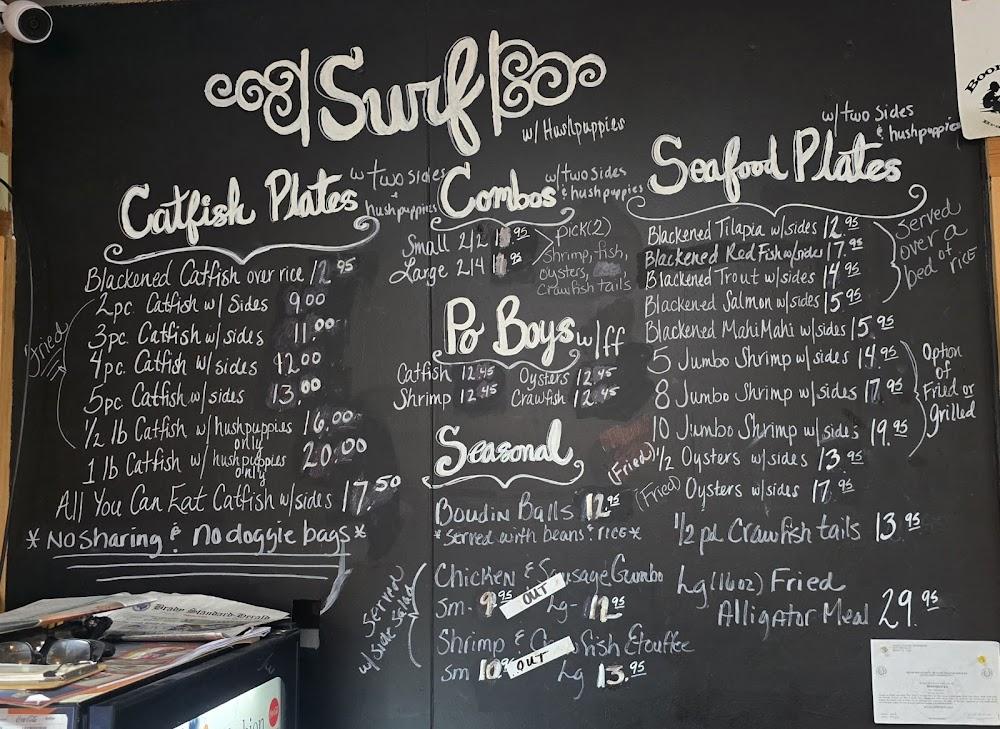 Surf
w/ Hushpuppies
Catfish Plates
w/two sides
& hushpuppies
Blackened Catfish over rice 12.95
Fried
2pc. Catfish w/ Sides 9.00
3pc. Catfish w/sides 11.00
4pc. Catfish w/sides 12.00
5pc. Catfish w/sides 13.00
1/2 lb Catfish w/hushpuppies only 16.00
1 lb Catfish w/ hushpuppies only 20.00
All You Can Eat Catfish w/sides 17.50
*No sharing & No doggie bags*
Combos
w/two sides
& hushpuppies
Small 2/2
Large 2/4
Pick(2)
shrimp, fish,
oysters,
crawfish tails
Po Boys w/ff
Catfish 12.45 Oysters 12.45
Shrimp 12.45 Crawfish 12.45
Seasonal
Boudin Balls 12.95
*Served with beans & rice*
Served
w/ side salad
Chicken & Sausage Gumbo
sm- 9.95 OUT Lg- 12.95
Shrimp & Crawfish Etouffee
sm 10.95 OUT Lg 13.95
Seafood Plates
w/two sides
& hushpuppies
Blackened Tilapia w/sides 12.95
Blackened Red Fish w/sides 17.95
Blackened Trout w/sides 14.95
Blackened Salmon w/sides 15.95
Blackened Mahi Mahi w/sides 15.95
Served
over a
bed of rice
5 Jumbo Shrimp w/sides 14.95
8 Jumbo Shrimp w/sides 17.95
10 Jumbo Shrimp w/sides 19.95
Option
of
Fried or
Grilled
(Fried) 1/2 Oysters w/sides 13.95
(Fried) Oysters w/sides 17.95
1/2 pd Crawfish tails 13.95
Lg (16oz) Fried
Alligator Meal 29.95
Brady Standard-Herald
Coca-Cola